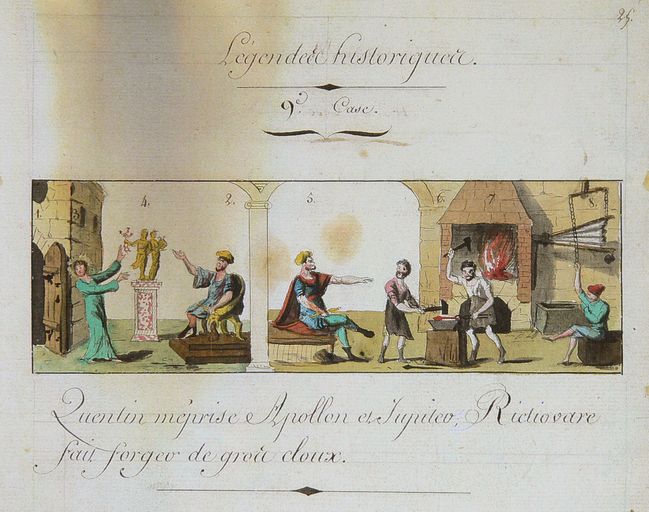 25.
Légendes historiques.
9e. Case.
1. 3. 4. 2. 5. 6. 7. 8.
Quentin méprise Apollon et Jupiter, Rictiovare
fait forger de gros cloux.